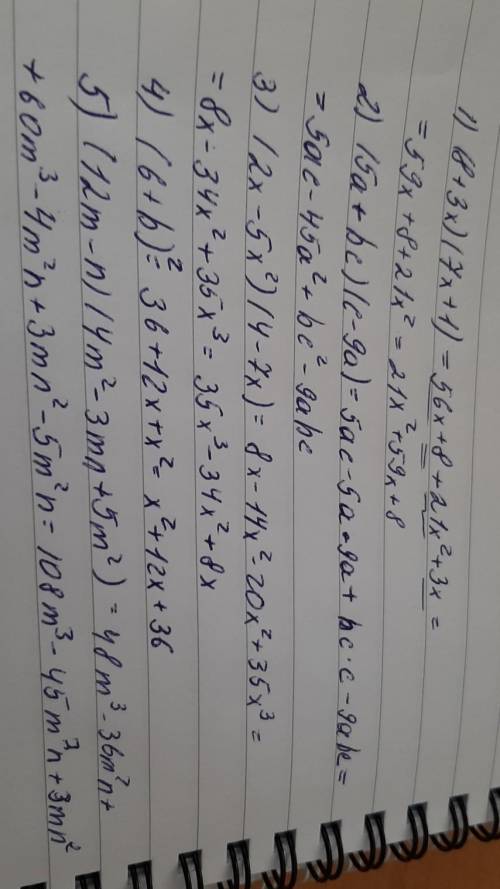 1) (8+3x)(7x+1) = 56x+8+21x²+3x =
= 59x+8+21x² = 21x²+59x+8
2) (5a+bc)(c-9a) = 5ac-5a·9a+bc·c-9abc=
= 5ac-45a²+bc²-9abc
3) (2x-5x²)(4-7x) = 8x-14x²-20x²+35x³=
= 8x-34x²+35x³ = 35x³-34x²+8x
4) (6+b)² = 36+12x+x² = x²+12x+36
5) (12m-n)(4m²-3mn+5m²) = 48m³-36m²n+
+60m³-4m²n+3mn²-5m²n = 108m³-45m²n+3mn²